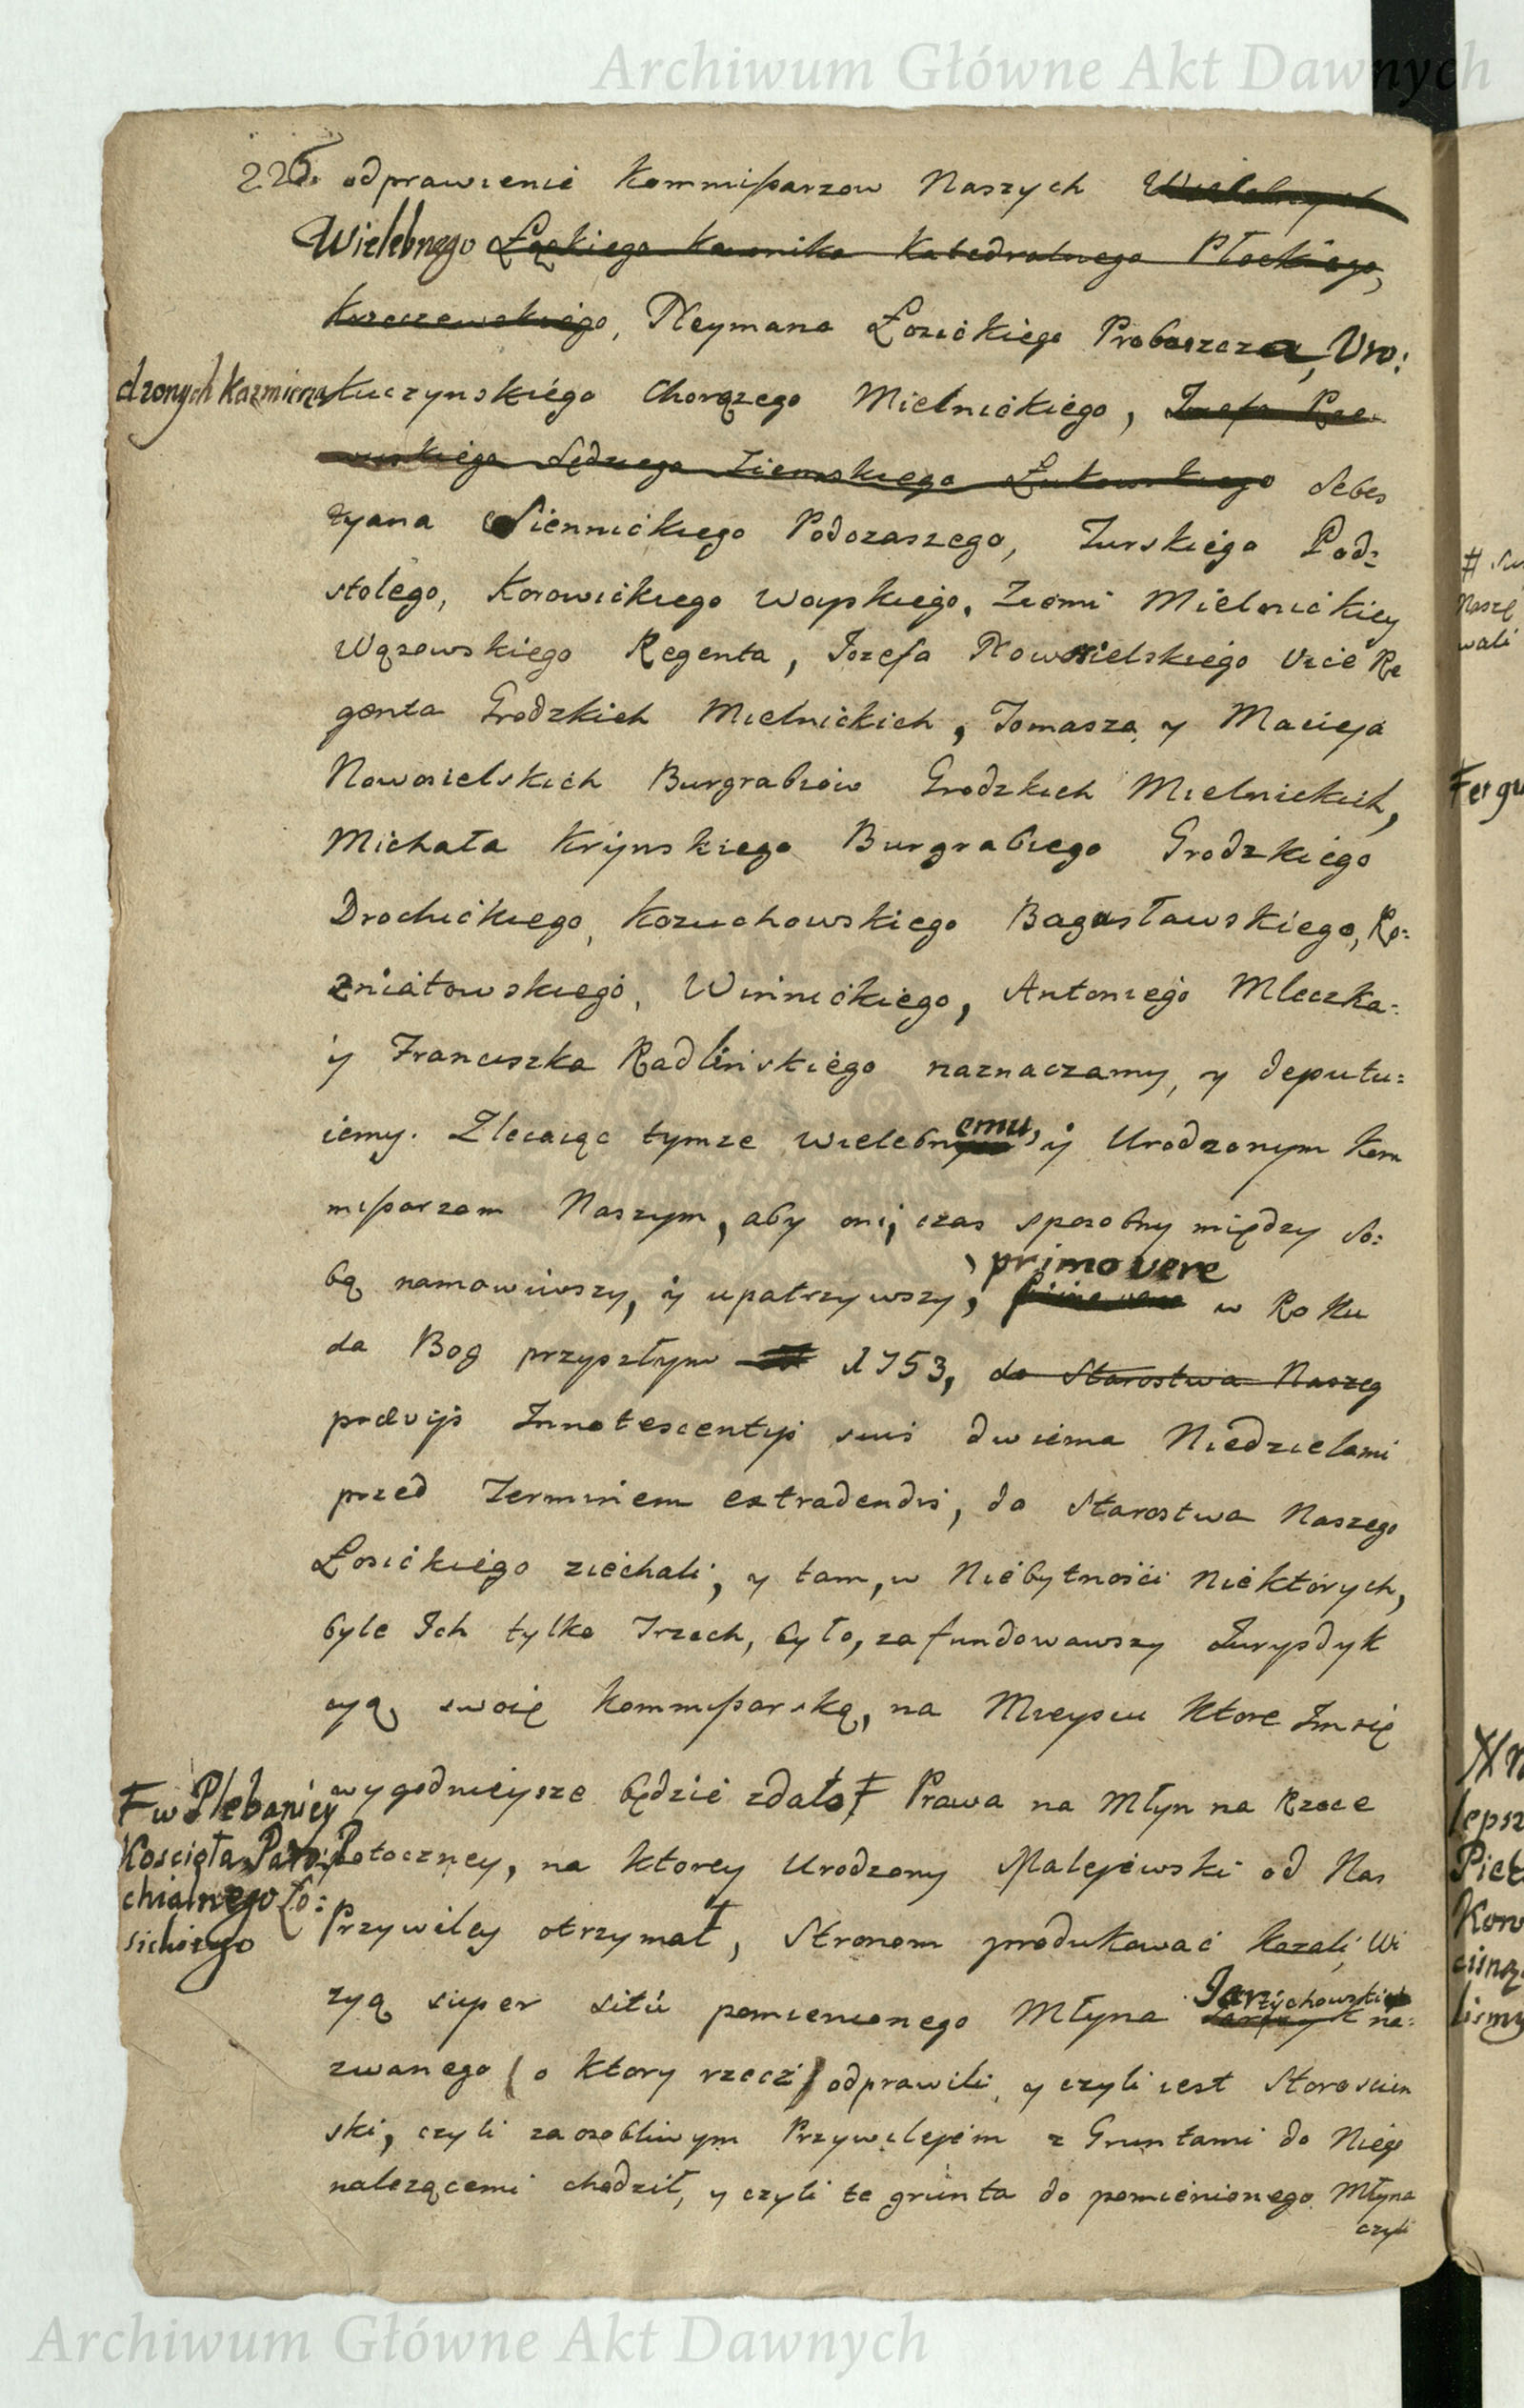 Archiwum Główne Akt Dawnych
226. odprawienie Kommissarzow Naszych Wielebnych
Wielebnego Łąckiego Kanonika Katedralnego Płockiego,
Kruszewskiego, Neymana Łosickiego Proboszcza, Uro:
dzonych Kazmierza Kuczynskiego Chorążego Mielnickiego, Jozefa
Sędziego Ziemskiego Łukowskiego Sebes
tyana Siennickiego Podczaszego, Turskiego Pod:
stolego, Korowickiego Woyskiego, Ziemi Mielnickiey
Wązowskiego Regenta, Jozefa Nowosielskiego Vice Re
genta Grodzkich Mielnickich, Tomasza y Macieja
Nowosielskich Burgrabiow Grodzkich Mielnickich,
Michała Krijnskiego Burgrabiego Grodzkiego
Drochickiego, Kozuchowskiego Bagosławskiego, Ro:
zniatowskiego, Winnickiego, Antoniego Mleczka:
ij Franciszka Radlinskiego naznaczamy, y deputu:
iemy. Zlecaiąc tymze Wielebnemu, ij Urodzonym Kom
missarzom Naszym, aby oni, czas sposobny między So:
bą namowiwszy, ij upatrzywszy, primo vere w Roku
da Bog przyszłym 1753, do Starostwa Naszeg
praevijs Innotescentijs suis dwiema Niedzielami
przed Terminem extradendis, do Starostwa Naszego
Łosickiego ziechali, y tam, w Niebytnośći Niektórych,
byle Ich tylko Trzech, było, zafundowawszy Jurysdyk
cyą swoię Kommissarską, na Mieyscu Ktore Im się
wygodnieysze będzie zdało Ŧ Prawa na Młyn na Rzece
Ŧ w Plebaniey
Koscioła Paro:
chialnego Ło:
sickiego
Potoczney, na Ktorey Urodzony Malejewski od Nas
Przywiley otrzymał, Stronom produkować kazali, Wi
zyą super sitû pomienionego Młyna Jarzychowski na:
zwanego (o Ktory rzecz) odprawili y czyli iest Staroscin
ski, czyli za osobliwym Przywilejem z Gruntami do Niego
nalezącemi chodził, y czyli te grunta do pomienionego Młyna
czyli
# su
Naszę
wali
Fergu
lepsz
Piet
Kow
lismy
Archiwum Główne Akt Dawnych